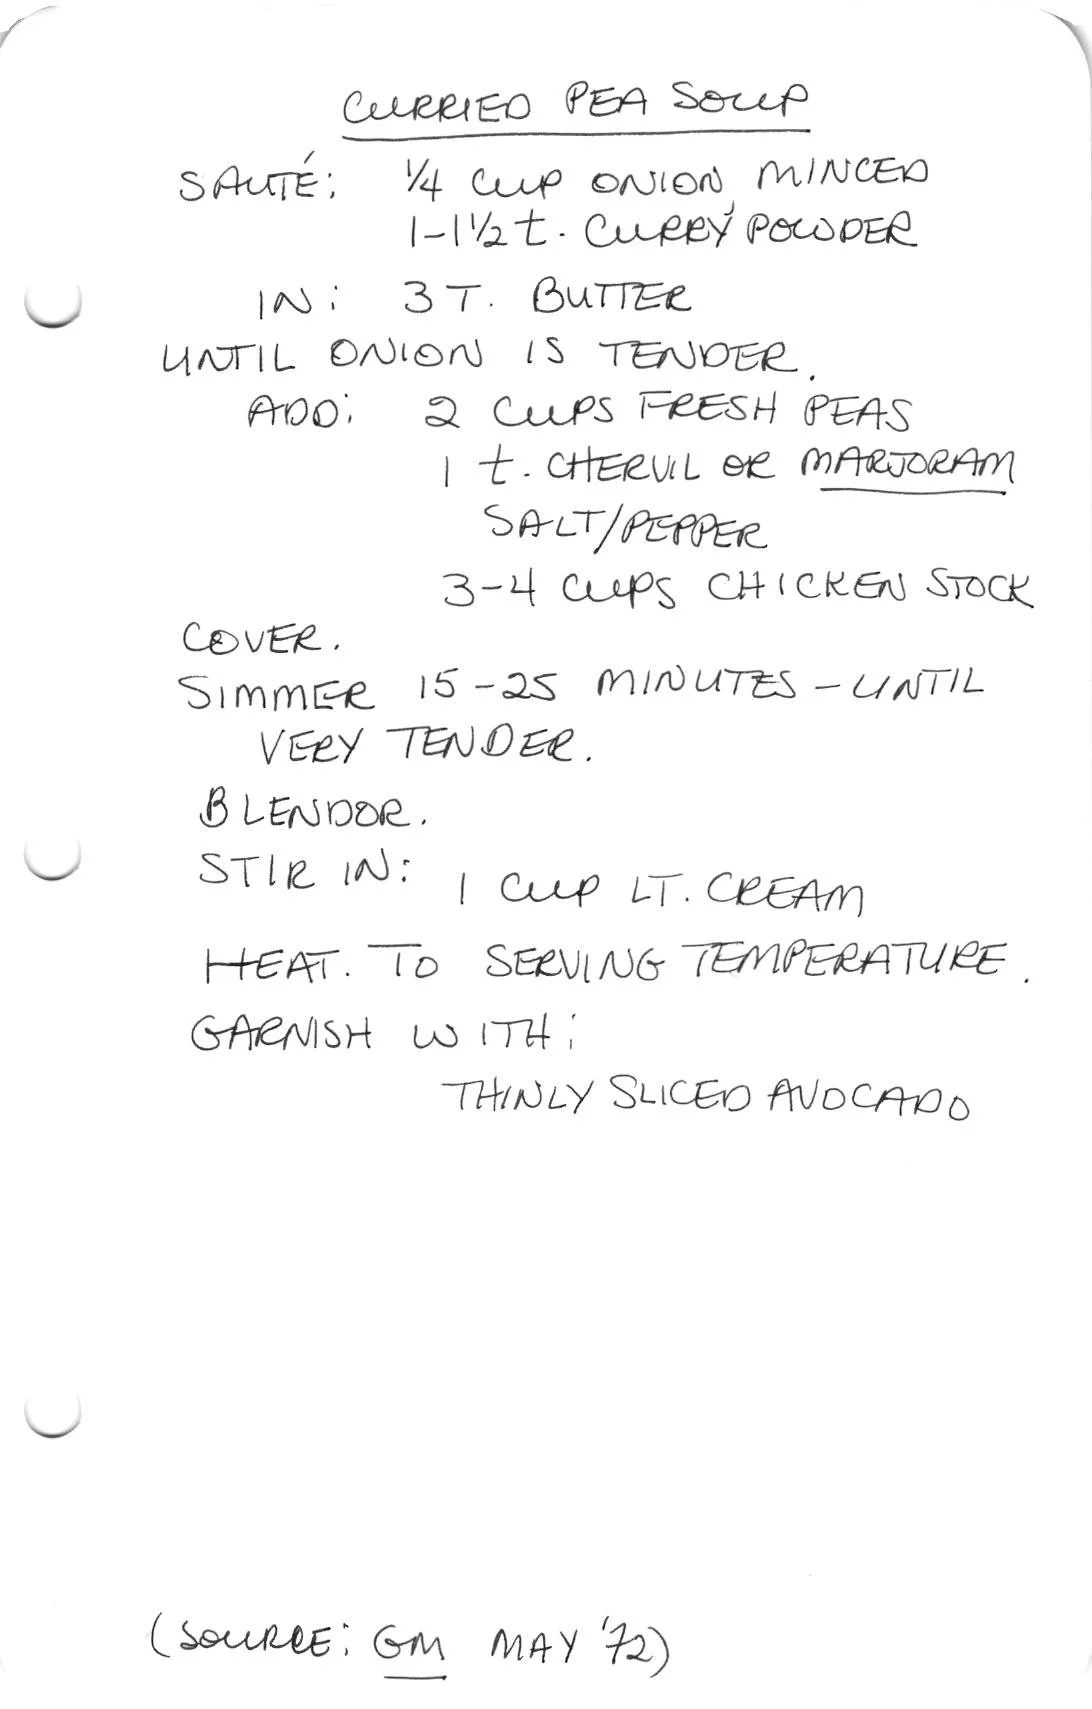 CURRIED PEA SOUP
SAUTÉ: 1/4 CUP ONION, MINCED
1-1 1/2 t. CURRY POWDER
IN: 3 T. BUTTER
UNTIL ONION IS TENDER.
ADD: 2 CUPS FRESH PEAS
1 t. CHERVIL OR MARJORAM
SALT/PEPPER
3-4 CUPS CHICKEN STOCK
COVER.
SIMMER 15-25 MINUTES - UNTIL
VERY TENDER.
BLENDOR.
STIR IN: 1 CUP LT. CREAM
HEAT. TO SERVING TEMPERATURE.
GARNISH WITH:
THINLY SLICED AVOCADO
(SOURCE: GM MAY '72)